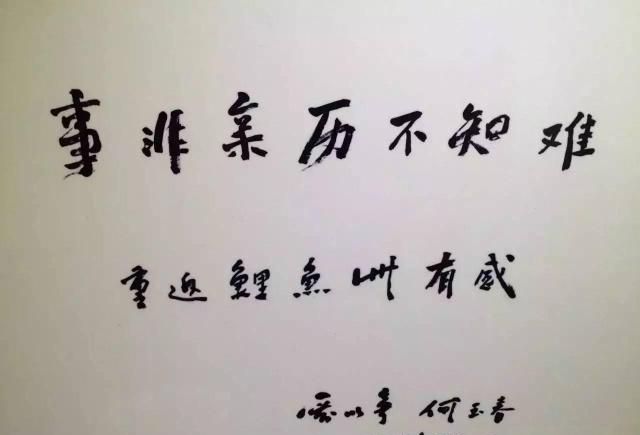 事非亲历不知难
重返鲤鱼洲有感
何玉春